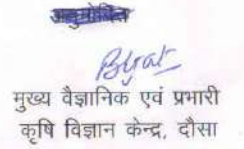 मुख्य वैज्ञानिक एवं प्रभारी
कृषि विज्ञान केन्द्र, दौसा